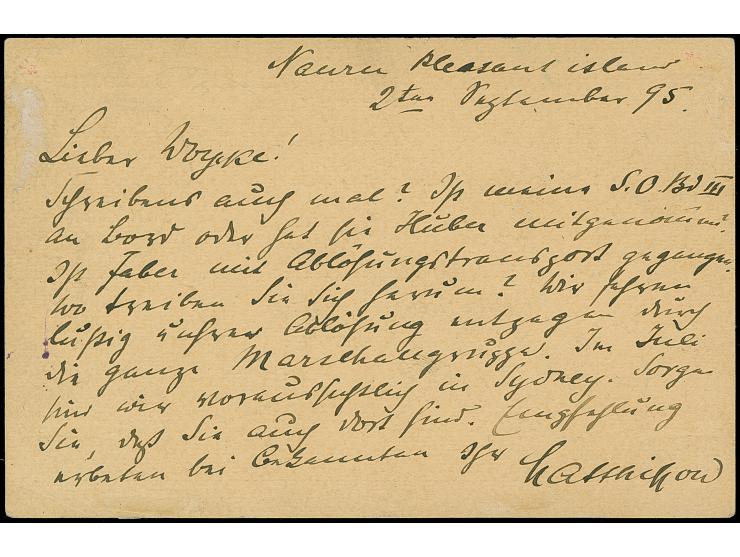 Nauru Pleasant island
2ten September 95.
Lieber Woyke!
Schreibens auch mal? Ist meine S.O. Bd III
an Bord oder hat sie Huber mitgenommen?
Ist Faber mit Ablösungstransport gegangen.
Wo treiben Sie sich herum? Wir fahren
lustig unsrer Ablösung entgegen durch
die ganze Marschallgruppe. Im Juli
sind wir voraussichtlich in Sydney. Sorgen
Sie, daß Sie auch dort sind. Empfehlung
erbeten bei Bekannten Ihr